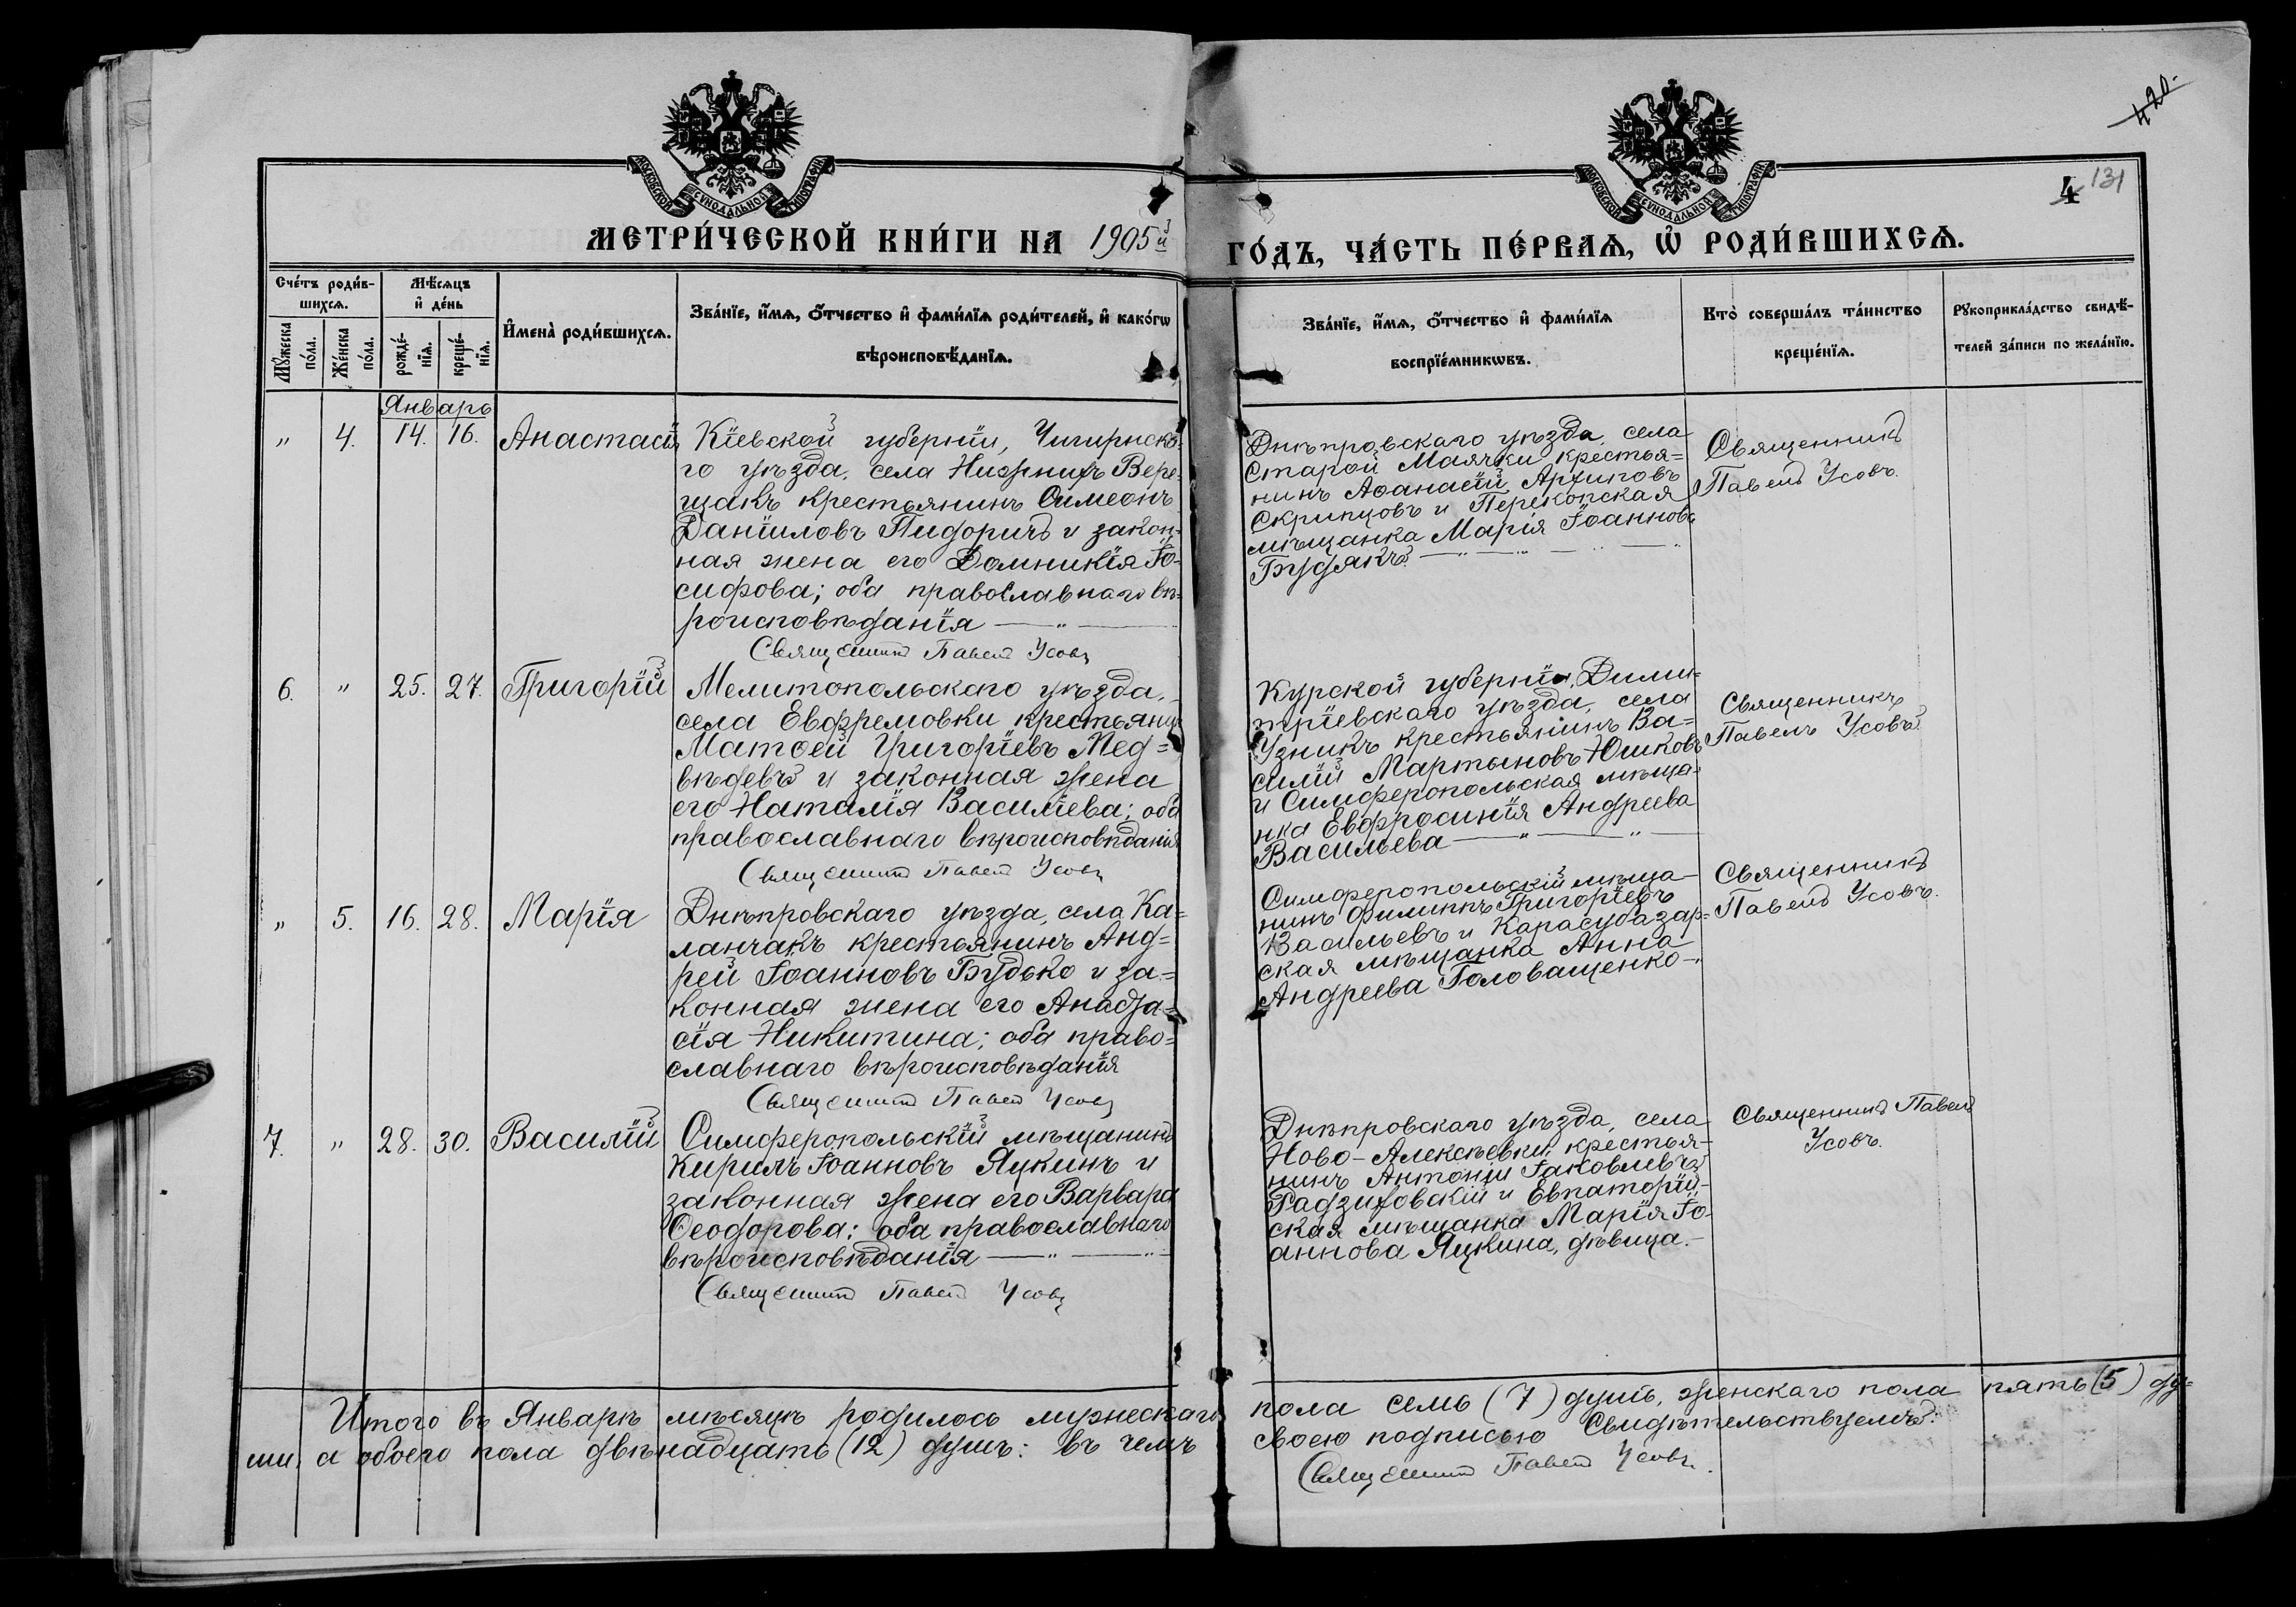 420.
4 131
МОСКОВСКОЙ СѴНОДАЛЬНОЙ ТИПОГРАФІИ
МОСКОВСКОЙ СѴНОДАЛЬНОЙ ТИПОГРАФІИ
МЕТРИ́ЧЕСКОЙ КНИ́ГИ НА 1905й ГО́ДЪ, ЧА́СТЬ ПЕ́РВАѦ, Ѡ РОДИ́ВШИХСѦ.
Сче́тъ роди́в-
шихсѧ.
Мꙋ́жеска
по́ла.
Же́нска
по́ла.
Мѣ́сѧцъ
и҆ де́нь
рожде́-
нїѧ.
креще́-
нїѧ.
И҆мена̀ роди́вшихсѧ.
Зва́нїе, и҆́мѧ, ѻ҆́тчество и҆ фами́лїѧ роди́телей, и҆ како́гѡ
вѣроисповѣ́данїѧ.
Зва́нїе, и҆́мѧ, ѻ҆́тчество и҆ фами́лїѧ
воспрїе́мникѡвъ.
Кто̀ соверша́лъ та́инство
креще́нїѧ.
Рꙋкоприкла́дство свидѣ́-
телей за́писи по жела́нїю.
Январь
„ 4. 14. 16. Анастасія
Кіевской губерніи, Чигиринско-
го уѣзда, села Нижнихъ Вере-
щакъ крестьянинъ Симеонъ
Даніиловъ Пидоричъ и закон-
ная жена его Домникія Іо-
сифова; оба православнаго вѣ-
роисповѣданія — „ —
Священникъ Павелъ Усовъ
Днѣпровскаго уѣзда, села
Старой Маячки крестья=
нинъ Аѳанасій Архиповъ
Скрипцовъ и Перекопская
мѣщанка Марія Іоаннова
Будякъ — „ — „ — „ — „
Священникъ
Павелъ Усовъ.
6. „ 25. 27. Григорій
Мелитопольскаго уѣзда,
села Евфремовки крестьянинъ
Матѳей Григоріевъ Мед=
вѣдевъ и законная жена
его Наталія Василіева; оба
православнаго вѣроисповѣданія
Священникъ Павелъ Усовъ
Курской губерніи, Дими-
тріевскаго уѣзда, села
Узникъ крестьянинъ Ва=
силій Мартыновъ Юшковъ
и Симферопольская мѣща-
нка Евфросинія Андреева
Васильева — „ — „ —
Священникъ
Павелъ Усовъ
„ 5. 16. 28. Марія
Днѣпровскаго уѣзда, села Ка=
ланчакъ крестьянинъ Анд=
рей Іоанновъ Будько и за=
конная жена его Анаста=
сія Никитина; оба право=
славнаго вѣроисповѣданія
Священникъ Павелъ Усовъ
Симферопольскій мѣща-
нинъ Филиппъ Григоріевъ
Васильевъ и Карасубазар=
ская мѣщанка Анна
Андреева Головащенко
Священникъ
Павелъ Усовъ.
7. „ 28. 30. Василій
Симферопольскій мѣщанинъ
Кирилъ Іоанновъ Яцкинъ и
законная жена его Варвара
Ѳеодорова; оба православнаго
вѣроисповѣданія — „ — „ —
Священникъ Павелъ Усовъ
Днѣпровскаго уѣзда, села
Ново-Алексѣевки, крестья-
нинъ Антоній Іаковлевъ
Радзиховскій и Евпаторій-
ская мѣщанка Марія Іо-
аннова Яцкина, дѣвица.—
Священникъ Павелъ
Усовъ.
Итого въ Январѣ мѣсяцѣ родилось мужескаго пола семь (7) душъ, женскаго пола пять (5) ду=
ши, а обоего пола двѣнадцать (12) душъ: въ чемъ своею подписью Свидѣтельствуемъ:
Священникъ Павелъ Усовъ.